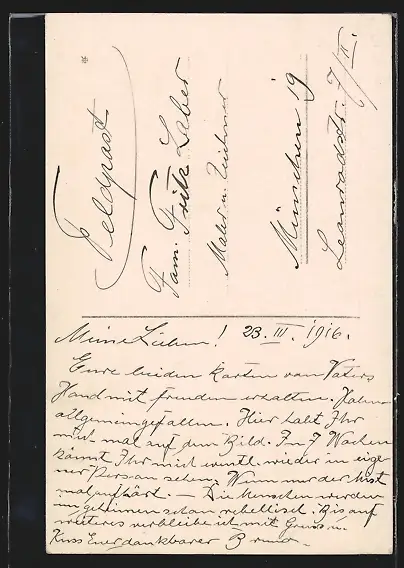 Feldpost
Fam. Fritz Laber
Maler u. Zeichner
München 19
Leonrodstr. 7/III.
Meine Lieben! 23. III. 1916.
Eure beiden Karten von Vaters
Hand mit freuden erhalten. Haben
allgemein gefallen. Hier habt Ihr
mich mal auf dem Bild. In 7 Wochen
könnt Ihr mich eventl. wieder in eige-
ner Person sehen. Wenn nur der Mist
mal aufhört. — Die Menschen werden
im geheimen schon rebellisch. Bis auf
weiteres verbleibe ich mit Gruss u.
Kuss Euer dankbarer Bruno.